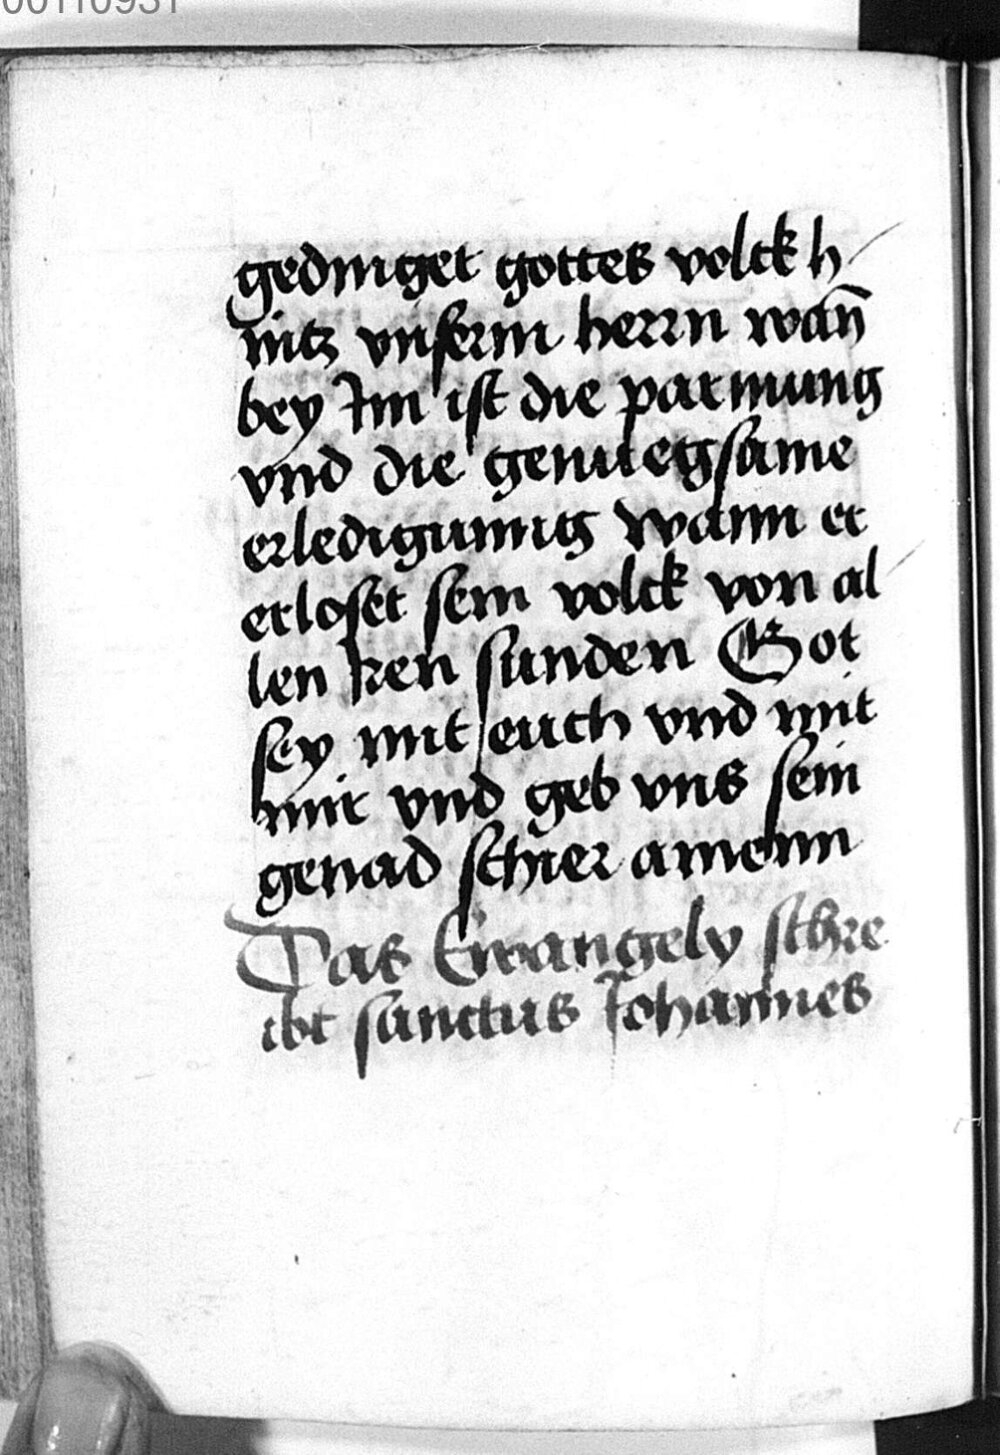 00110931
gedinget gottes volck h
nitz vnserm herrn wan̄
bey Im ist die parmung
vnd die genuegsame
erledigunng wann er
erloset sein volck von al
len Iren sunden Got
sey mit euch vnd mit
mir vnd geb vns sein
genad schier amenn
Das Ewangely schre
ibt sanctus Johannes